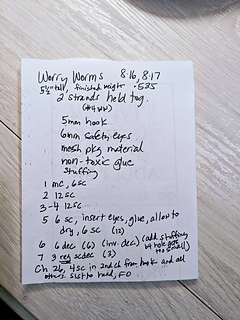 Worry Worms 8:16, 8:17
5½" tall, finished weight .525
2 strands held tog.
(#4 ww)
5mm hook
6mm safety eyes
mesh pkg material
non-toxic glue
stuffing
1 mc, 6sc
2 12sc
3-4 12sc
5 6 sc, insert eyes, glue, allow to
dry, 6 sc (12)
6 6 dec (6) (inv. dec) (add stuffing,
hole gets
too small)
7 3 reg scdec (3)
Ch 26, 4sc in 2nd ch from hook and all
others. slst to head, FO